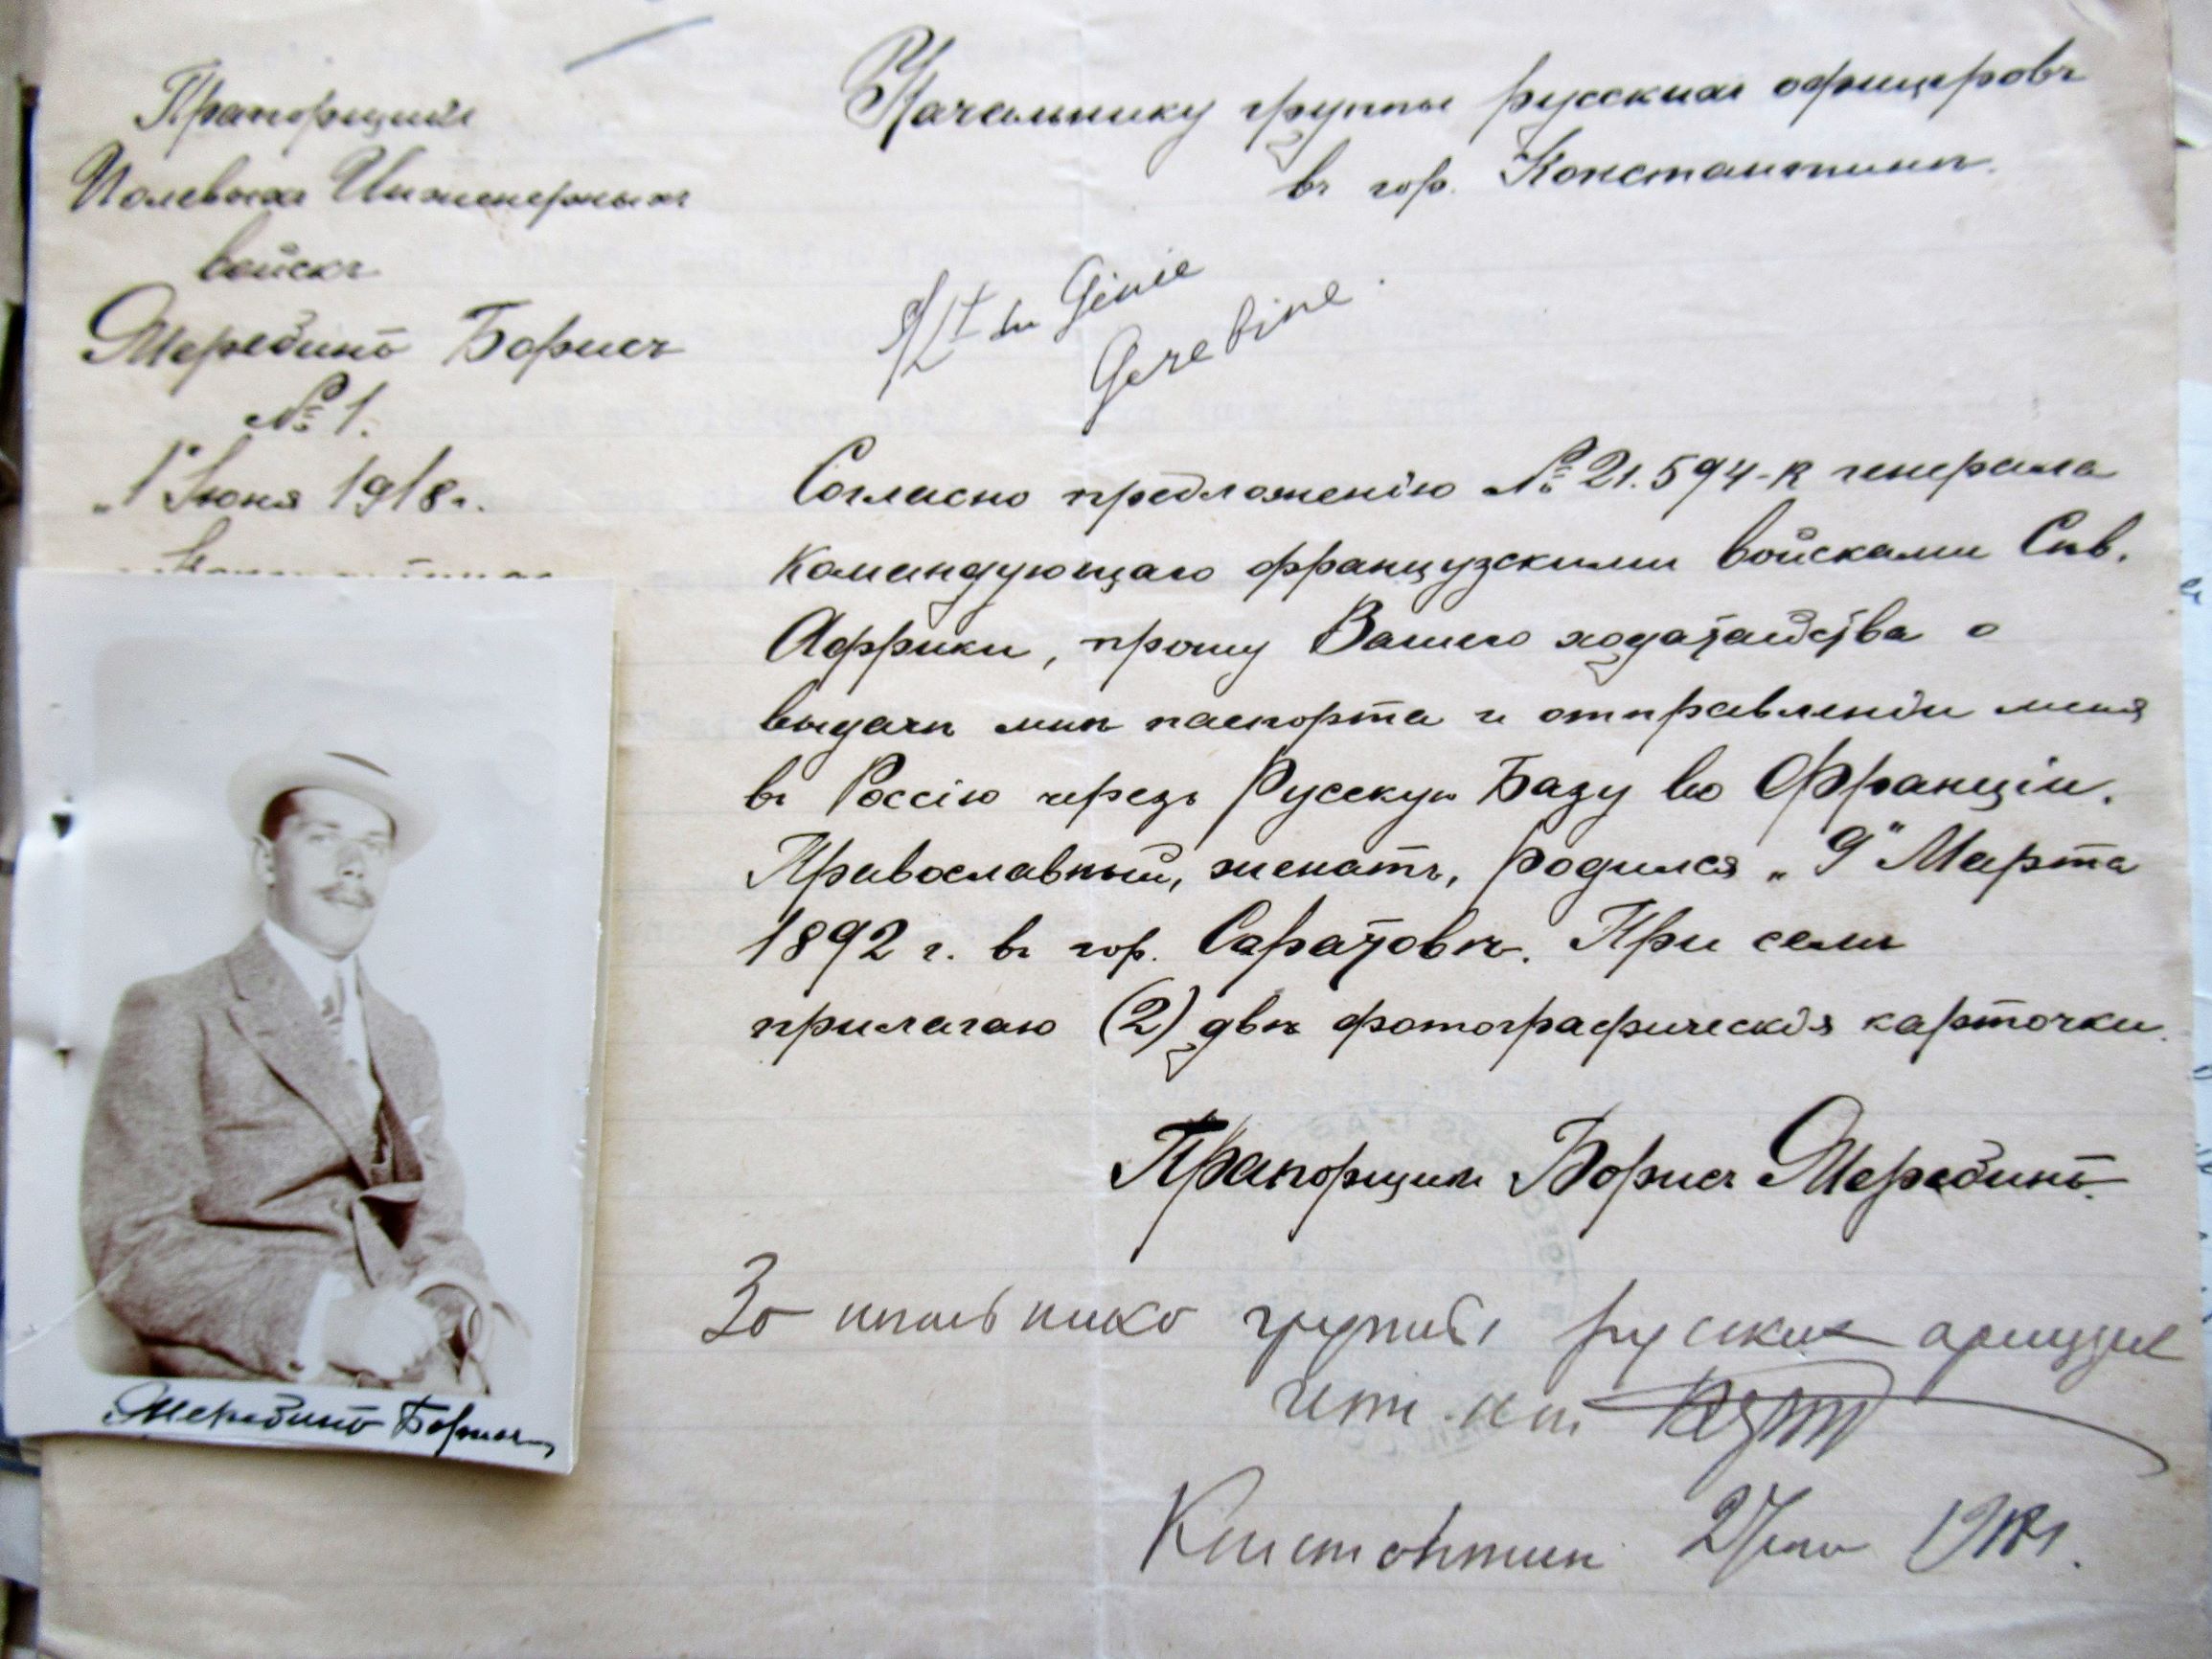 Прапорщикъ
Полевыхъ Инженерныхъ
войскъ
Жеребинъ Борисъ
№ 1.
„1" Іюня 1918 г.
Начальнику группы русскихъ офицеровъ
въ гор. Константинѣ.
S/Lt du Génie
Gerebine.
Согласно предложенію № 21.594-К генерала
командующаго французскими войсками Сѣв.
Африки, прошу Вашего ходатайства о
выдачѣ мнѣ паспорта и отправленіи меня
въ Россію черезъ Русскую Базу во Франціи.
Православный, женатъ, родился „9" Марта
1892 г. въ гор. Саратовѣ. При семъ
прилагаю (2) двѣ фотографическія карточки.
Прапорщикъ Борисъ Жеребинъ.
За начальника группы русских
Константин 2 Июня 1918 г.
Жеребинъ Борисъ